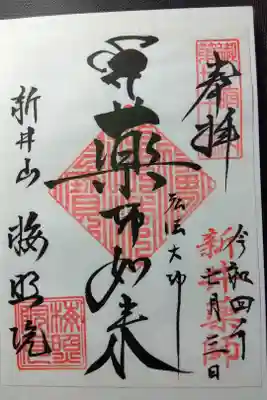 奉拝
新井薬師
令和四年
七月三日
弘法大師
薬師如来
新井山
梅照院